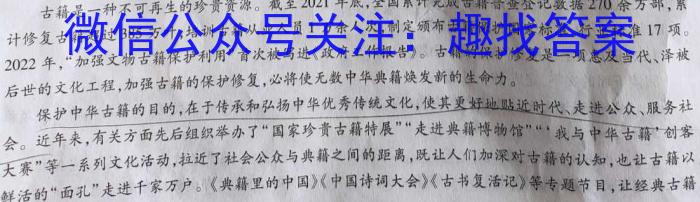 古籍是一种不可再生的珍贵资源。截至2021年底,全国累计完成古籍普查登记数据270余万部,累
计修复古籍
微信公众号关注:趣找答案
2022年,“加强文物古籍保护利用”首次被写进《政府工作报告》。古籍保护修复是一项惠及当代、泽被
后世的文化工程,加强古籍的保护修复,必将使无数中华典籍焕发新的生命力。
保护中华古籍的目的,在于传承和弘扬中华优秀传统文化,使其更好地贴近时代、走进公众、服务社
会。近年来,有关方面先后组织举办了“国家珍贵古籍特展”“走进典籍博物馆”“‘我与中华古籍’创客
大赛”等一系列文化活动,拉近了社会公众与典籍之间的距离,既让人们加深对古籍的认知,也让古籍以
鲜活的“面孔”走进千家万户。《典籍里的中国》《中国诗词大会》《古书复活记》等专题节目,让经典古籍